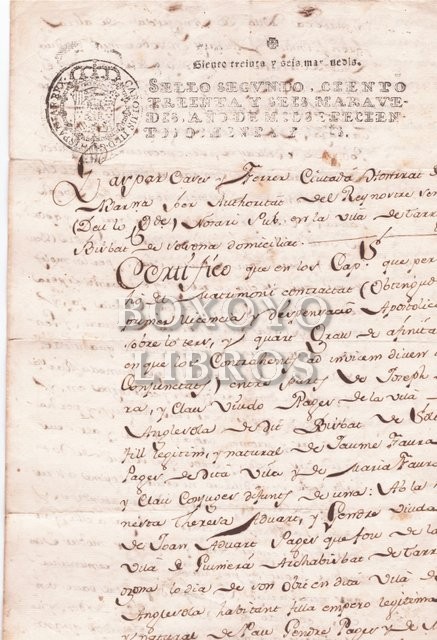 Siento treinta y seis maravedis.
SELLO SEGVNDO, CIENTO
TREINTA Y SEIS MARAVE-
DIS, AÑO DE MIL SETECIEN-
TOS OCHENTA Y
Gaspar Casas y Ferrer Ciutadá Honrrat de
per Authoritat del Rey nostre
(Deu lo Gde) Notari Pub. en la Vila de Tarr
Bisbat de Solsona domiciliat.
Certifico que en los Cap. que per
de Matrimoni contractat (Obtenguda
llicencia y dispensació Apostolica
sobre lo ters, y quart Grau de afinitat
en que los Contrahents ad invicem
Conjunctats) entre parts de Joseph
ra, y Clau Viudo Pages de la Vila
Anglesola de dit Bisbat de Sols
fill llegitim, y natural de Jaume Faura
Pages de dita Vila y de Maria Faura
y Clau Conjuges difunts de una: Ab la
nesta Theresa Aduart, y Pendre Viuda
de Joan Aduart Pages que fou de la
Vila de Guimerá Archabisbat de Tarra
gona lo dia de son Obit en dita Vila de
Anglesola habitant filla empero llegitima
y natural de Pau Pendre Pages y de
BOROYO
LIBROS